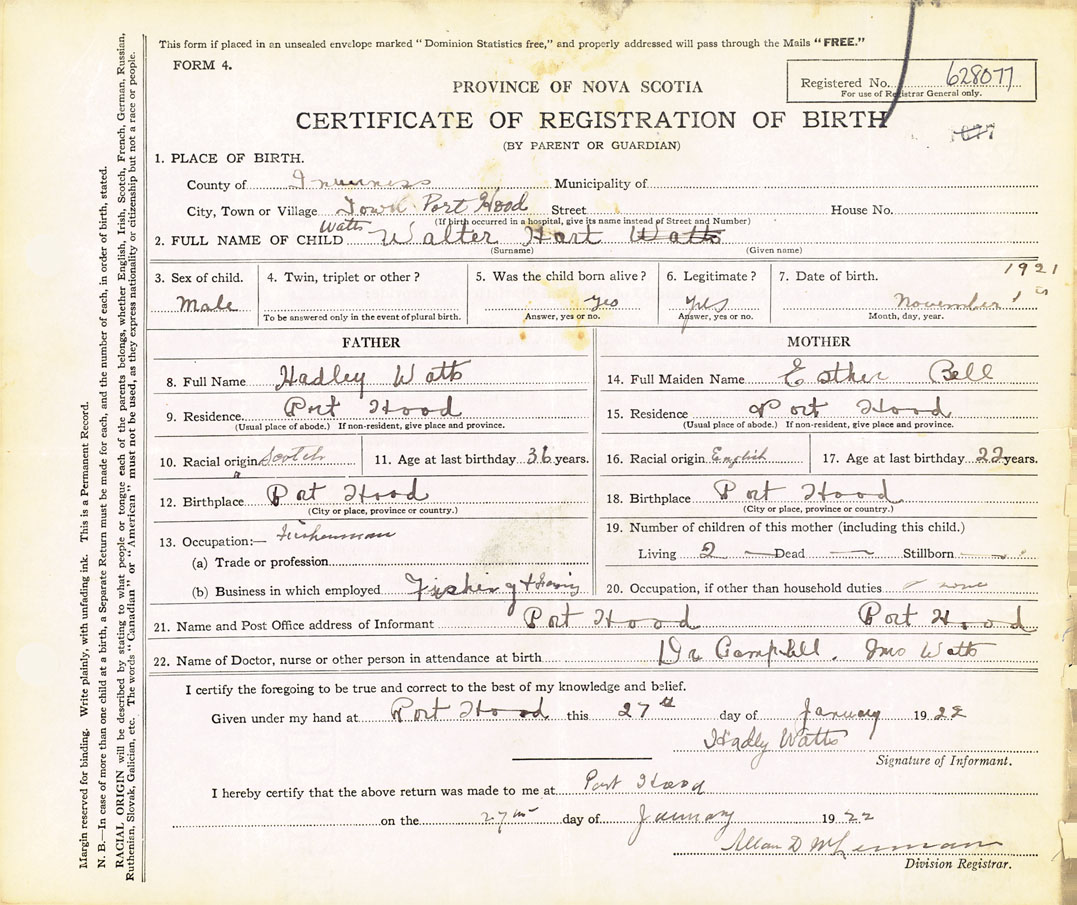 This form if placed in an unsealed envelope marked "Dominion Statistics free," and properly addressed will pass through the Mails "FREE."
FORM 4.
Registered No. 628077
For use of Registrar General only.
PROVINCE OF NOVA SCOTIA
CERTIFICATE OF REGISTRATION OF BIRTH
(BY PARENT OR GUARDIAN)
1. PLACE OF BIRTH.
County of Inverness Municipality of
City, Town or Village Town Port Hood Street House No.
(If birth occurred in a hospital, give its name instead of Street and Number)
Watts
2. FULL NAME OF CHILD Walter Hart Watts
(Surname) (Given name)
3. Sex of child. Male
4. Twin, triplet or other?
To be answered only in the event of plural birth.
5. Was the child born alive? yes
Answer, yes or no.
6. Legitimate? yes
Answer, yes or no.
7. Date of birth. 1921
November 1
Month, day, year.
FATHER
8. Full Name Hadley Watts
9. Residence Port Hood
(Usual place of abode.) If non-resident, give place and province.
10. Racial origin Scotch 11. Age at last birthday 36 years.
12. Birthplace Port Hood
(City or place, province or country.)
13. Occupation:— Fisherman
(a) Trade or profession
(b) Business in which employed Fishing
MOTHER
14. Full Maiden Name Esther Bell
15. Residence Port Hood
(Usual place of abode.) If non-resident, give place and province.
16. Racial origin English 17. Age at last birthday 22 years.
18. Birthplace Port Hood
(City or place, province or country.)
19. Number of children of this mother (including this child.)
Living 2 — Dead — Stillborn —
20. Occupation, if other than household duties
21. Name and Post Office address of Informant Port Hood Port Hood
22. Name of Doctor, nurse or other person in attendance at birth Dr Campbell. Watts
I certify the foregoing to be true and correct to the best of my knowledge and belief.
Given under my hand at Port Hood this 27th day of January 1922
Hadly Watts
Signature of Informant.
I hereby certify that the above return was made to me at Port Hood
on the 27th day of January 1922
Allan D
Division Registrar.
Margin reserved for binding. Write plainly, with unfading ink. This is a Permanent Record.
N. B.—In case of more than one child at a birth, a Separate Return must be made for each, and the number of each, in order of birth, stated.
RACIAL ORIGIN will be described by stating to what people or tongue each of the parents belongs, whether English, Irish, Scotch, French, German, Russian,
Ruthenian, Slovak, Galician, etc. The words "Canadian" or "American" must not be used, as they express nationality or citizenship but not a race or people.